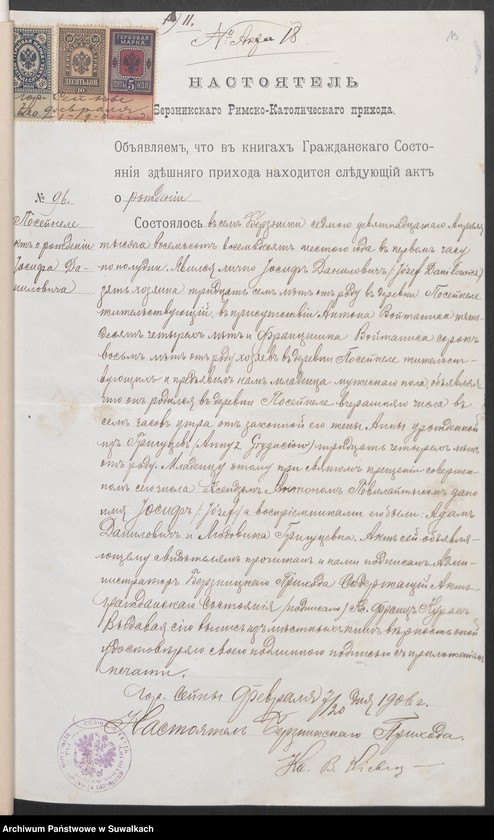 № 11.
№ Акта 18
НАСТОЯТЕЛЬ
Берзникскаго Римско-Католическаго прихода.
Объявляем, что въ книгахъ Гражданскаго Состо-
янія здѣшняго прихода находится слѣдующій актъ
о рожденіи
№ 96.
Посейнеле
актъ о рожденіи
Іосифа Да-
ниловича
Состоялось въ селѣ Бержники седьмого девятнадцатаго Апрѣля
тысяча восемьсотъ восемьдесятъ шестого года въ первомъ часу
по полудни. Явился лично Іосифъ Даниловичъ (Józef Daniłowicz)
зять хозяина тридцать семь лѣтъ отъ роду въ деревни Посейнеле
жительствующій, въ присутствіи Антона Войташка пяти-
десяти четырехъ лѣтъ и Францишка Войташка сорокъ
восьмь лѣтъ отъ роду хозяевъ въ деревни Посейнеле жительст-
вующихъ и предъявилъ намъ младенца мужескаго пола, объявляя
что онъ родился въ деревни Посейнеле вчерашняго числа въ
семь часовъ утра отъ законной его жены Анны урожденной
изъ (Anny z) тридцать четырехъ лѣтъ
отъ роду. Младенцу этому при святомъ крещеніи совершен-
номъ сего числа Ксендзомъ Антономъ дано
имя Іосифъ (Józef) а воспріемниками его были: Адамъ
Даниловичъ и Людовика. Актъ сей объявля-
ющему и свидѣтелямъ прочитанъ и нами подписанъ. Адми-
нистраторъ Бержницкаго Прихода Содержащій Акты
гражданскаго состоянія (подписалъ) Кс. Францъ
Выдавая сію выпись изъ мѣстныхъ книгъ вѣрность оной
удостовѣряю своею подлинною подписью съ приложеніемъ
печати.
Гор. Сейны Февраля 7/20 дня 1906 г.
Настоятель Бержникскаго Прихода.
Кс. В.
ГЕРБОВАЯ
МАРКА
ПЯТЬ 5 КОП
ДЕСЯТЬ КОП.
10
Archiwum Państwowe w Suwałkach